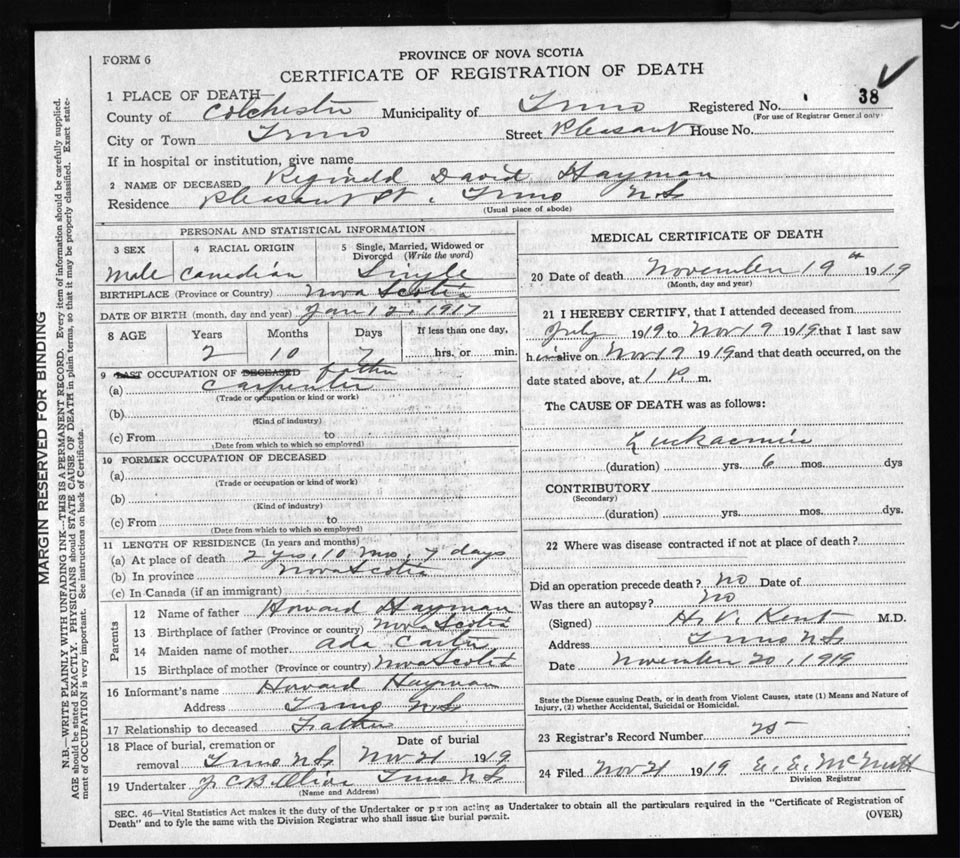 FORM 6
PROVINCE OF NOVA SCOTIA
CERTIFICATE OF REGISTRATION OF DEATH
1 PLACE OF DEATH—
County of Colchester Municipality of Truro Registered No. 38
(For use of Registrar General only)
City or Town Truro Street Pleasant House No.
If in hospital or institution, give name
2 NAME OF DECEASED Reginald David Hayman
Residence Pleasant St. Truro N.S.
(Usual place of abode)
PERSONAL AND STATISTICAL INFORMATION
3 SEX 4 RACIAL ORIGIN 5 Single, Married, Widowed or Divorced (Write the word)
Male Canadian Single
BIRTHPLACE (Province or Country) Nova Scotia
DATE OF BIRTH (month, day and year) Jan 12, 1917
8 AGE Years Months Days If less than one day,
2 10 7 hrs. or min.
9 LAST OCCUPATION OF DECEASED father
(a) Carpenter
(Trade or occupation or kind or work)
(b)
(Kind of industry)
(c) From to
(Date from which to which so employed)
10 FORMER OCCUPATION OF DECEASED
(a)
(Trade or occupation or kind of work)
(b)
(Kind of industry)
(c) From to
(Date from which to which so employed)
11 LENGTH OF RESIDENCE (In years and months)
(a) At place of death 2 yrs, 10 mo, 7 days
(b) In province Nova Scotia
(c) In Canada (if an immigrant)
Parents
12 Name of father Howard Hayman
13 Birthplace of father (Province or country) Nova Scotia
14 Maiden name of mother Ada Carter
15 Birthplace of mother (Province or country) Nova Scotia
16 Informant's name Howard Hayman
Address Truro N.S.
17 Relationship to deceased Father
18 Place of burial, cremation or removal Truro N.S. Date of burial Nov 21 1919
19 Undertaker Truro N.S.
(Name and Address)
MEDICAL CERTIFICATE OF DEATH
20 Date of death November 19th 1919
(Month, day and year)
21 I HEREBY CERTIFY, that I attended deceased from
July 1919 to Nov 19 1919 that I last saw
him alive on Nov 19 1919 and that death occurred, on the
date stated above, at 1 P. m.
The CAUSE OF DEATH was as follows:
(duration) yrs. 6 mos. dys
CONTRIBUTORY
(Secondary)
(duration) yrs. mos. dys.
22 Where was disease contracted if not at place of death?
Did an operation precede death? No Date of
Was there an autopsy? No
(Signed) H. V. Kent M.D.
Address Truro N.S.
Date November 20, 1919
State the Disease causing Death, or in death from Violent Causes, state (1) Means and Nature of
Injury, (2) whether Accidental, Suicidal or Homicidal.
23 Registrar's Record Number 25
24 Filed Nov 21 1919
Division Registrar
SEC. 46—Vital Statistics Act makes it the duty of the Undertaker or person acting as Undertaker to obtain all the particulars required in the "Certificate of Registration of
Death" and to fyle the same with the Division Registrar who shall issue the burial permit.
(OVER)
MARGIN RESERVED FOR BINDING
N.B.—WRITE PLAINLY WITH UNFADING INK—THIS IS A PERMANENT RECORD. Every item of information should be carefully supplied.
AGE should be stated EXACTLY. PHYSICIANS should STATE CAUSE OF DEATH in plain terms, so that it may be properly classified. Exact state-
ment of OCCUPATION is very important. See instructions on back of Certificate.